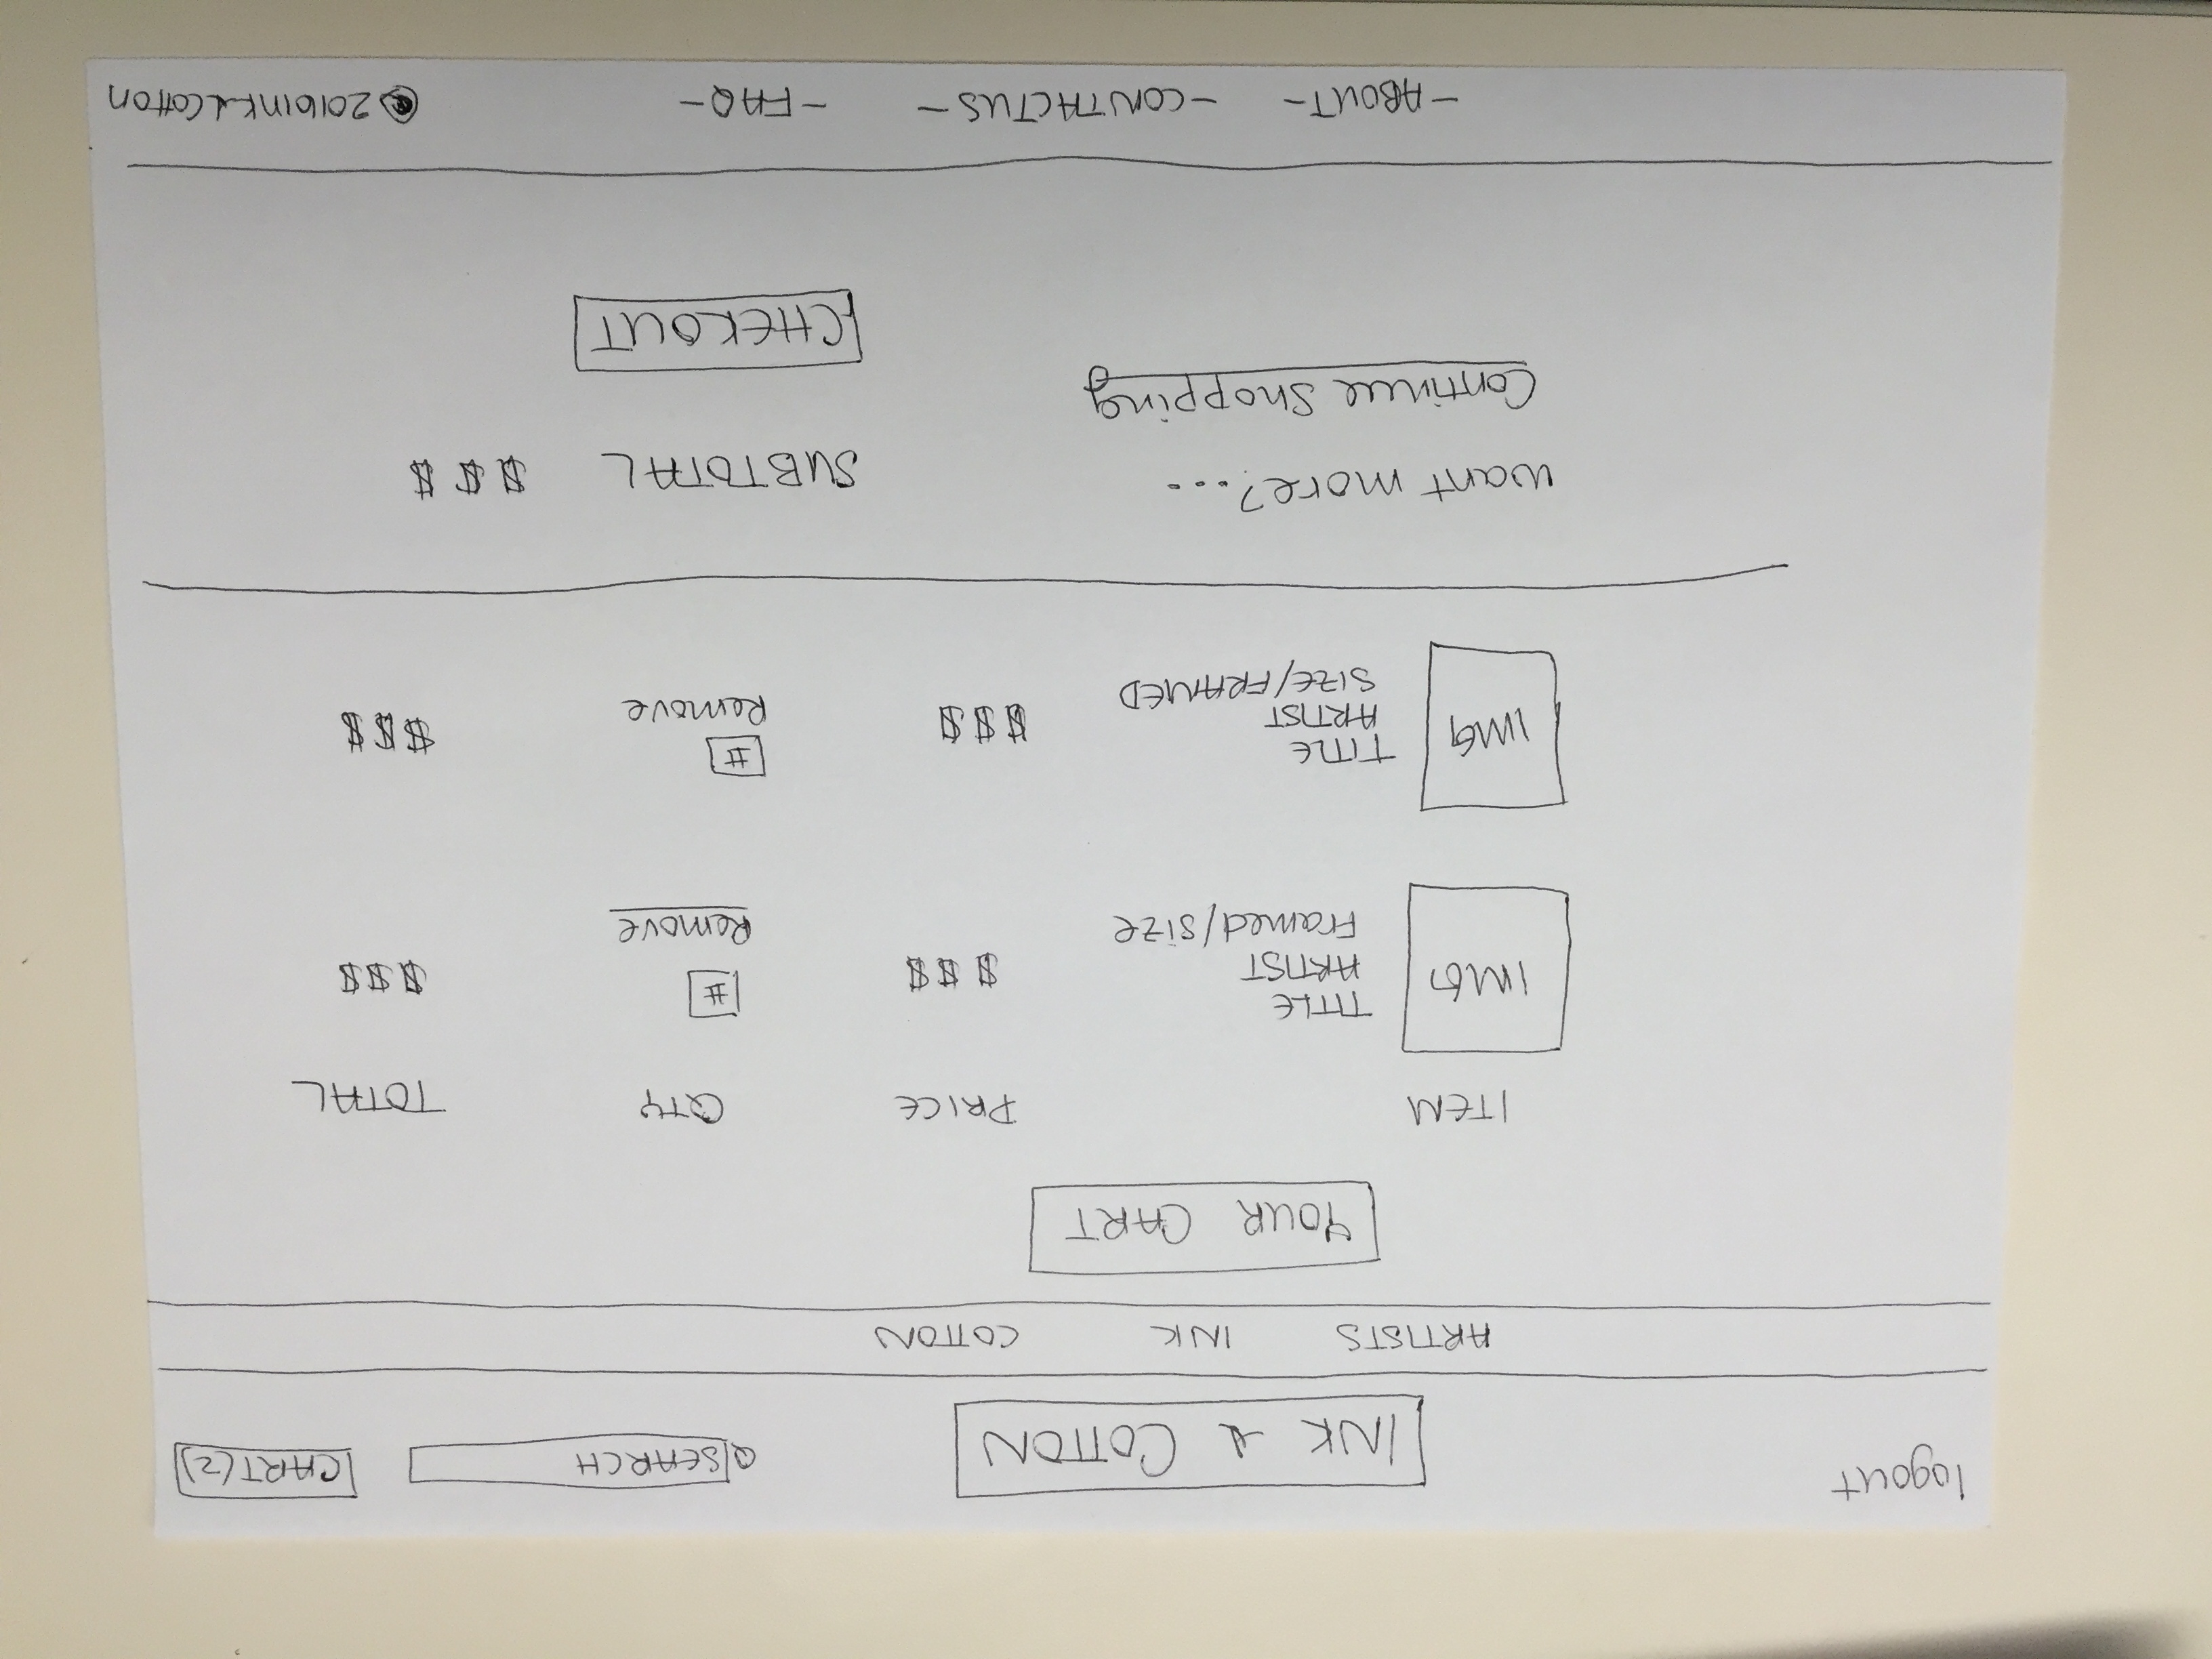 logout
INK & COTTON
SEARCH
CART(2)
ARTISTS INK COTTON
YOUR CART
ITEM PRICE QTY TOTAL
IMG
TITLE
ARTIST
Framed/size
$$$
#
Remove
$$$
IMG
TITLE
ARTIST
SIZE/FRAMED
$$$
#
Remove
$$$
want more?...
Continue Shopping
SUBTOTAL $$$
CHEKOUT
-ABOUT- -CONTACTUS- -FAQ- © 2016 Ink & Cotton